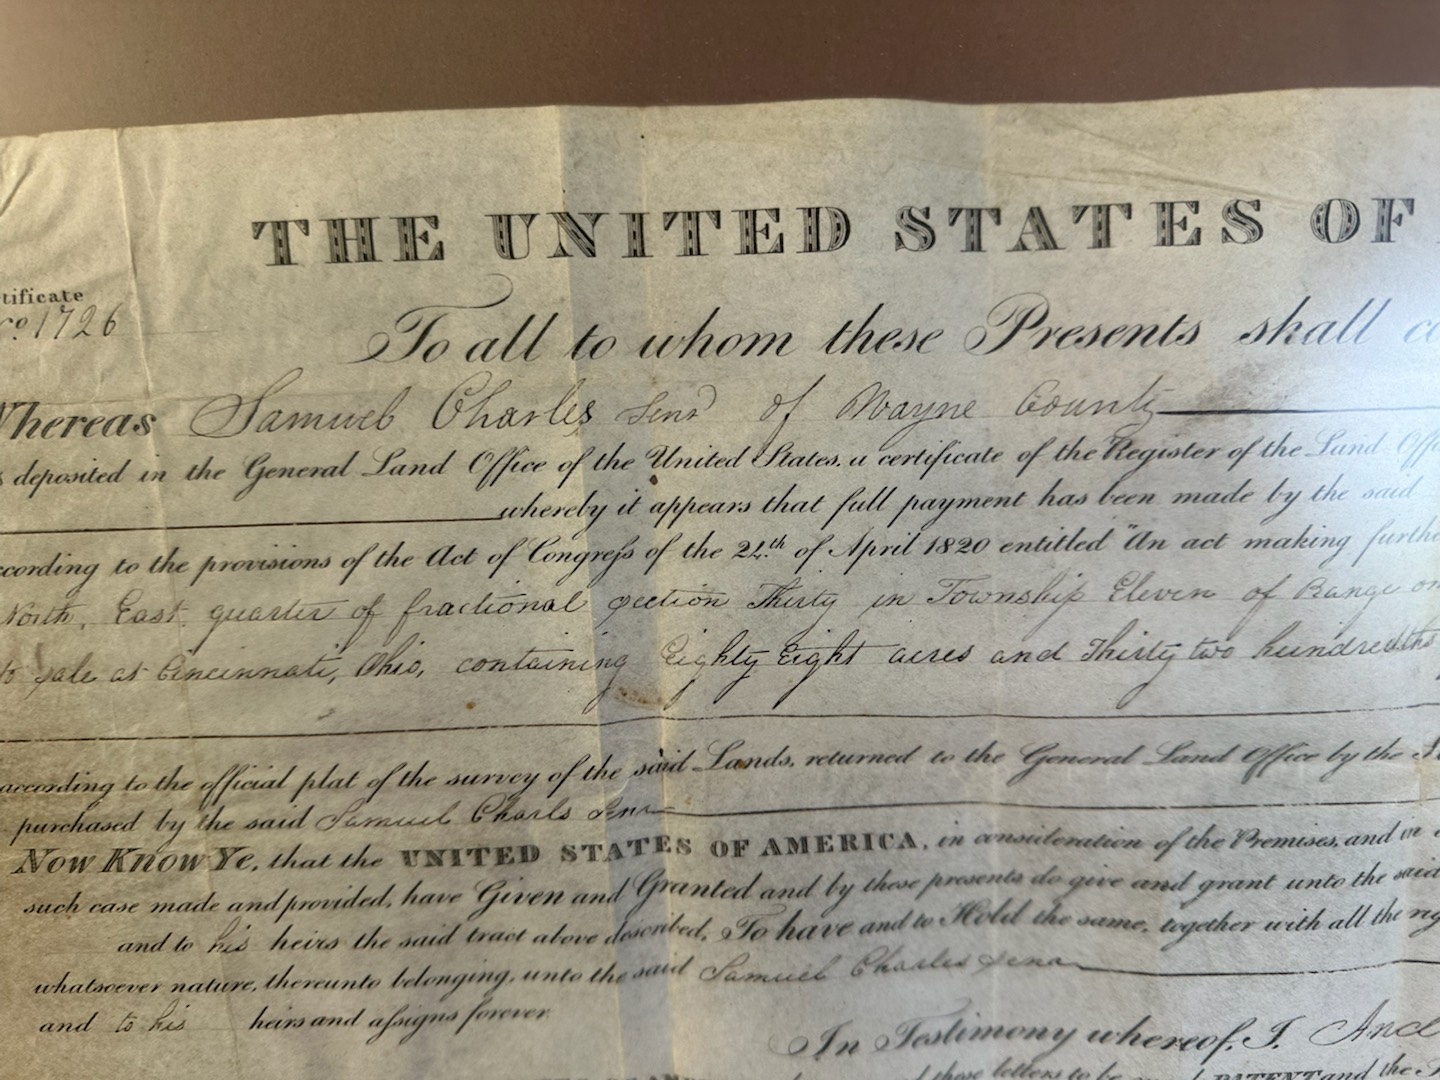 THE UNITED STATES OF
tificate
No. 1726
To all to whom these Presents shall co
Whereas Samuel Charles Senr of Wayne County
s deposited in the General Land Office of the United States, a certificate of the Register of the Land Offi
whereby it appears that full payment has been made by the said
ccording to the provisions of the Act of Congress of the 24th of April 1820 entitled "An act making furthe
North, East quarter of fractional section Thirty in Township Eleven of Range on
to sale at Cincinnati, Ohio, containing Eighty Eight acres and Thirty two hundredths
according to the official plat of the survey of the said Lands, returned to the General Land Office by the
purchased by the said Samuel Charls Senr
Now Know Ye, that the UNITED STATES OF AMERICA, in consideration of the Premises, and in
such case made and provided, have Given and Granted and by these presents do give and grant unto the said
and to his heirs the said tract above described, To have and to Hold the same, together with all the rig
whatsoever nature, thereunto belonging, unto the said Samuel Charles Senr
and to his heirs and assigns forever.
In Testimony whereof, I, And
these letters to be PATENT and the